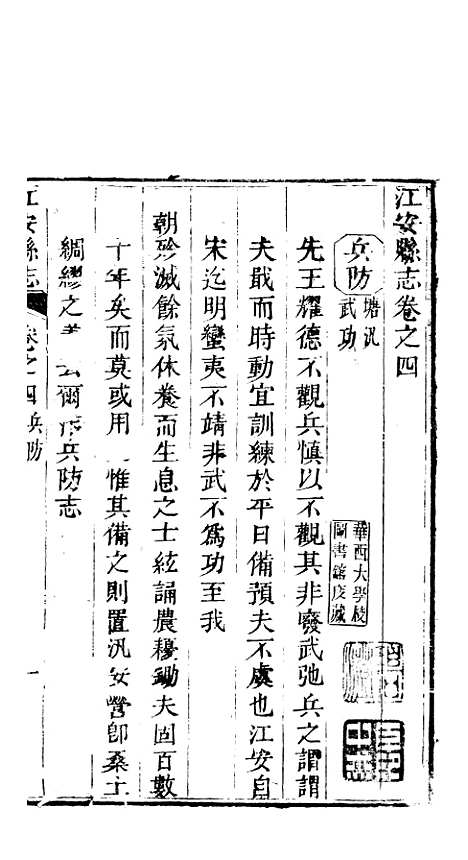 江安縣志卷之四
兵防
塘汛
武功
華西大學校
圖書館庋藏
先王耀德不觀兵慎以不觀其非廢武弛兵之謂謂
夫戢而時動宜訓練於平日備預夫不虞也江安自
宋迄明蠻夷不靖非武不為功至我
朝殄滅餘氛休養而生息之士絃誦農耰鋤夫固百數
十年矣而莫或用 惟其備之則置汛安營即桑土
綢繆之 云爾作兵防志
江安縣志
卷之四兵防
一